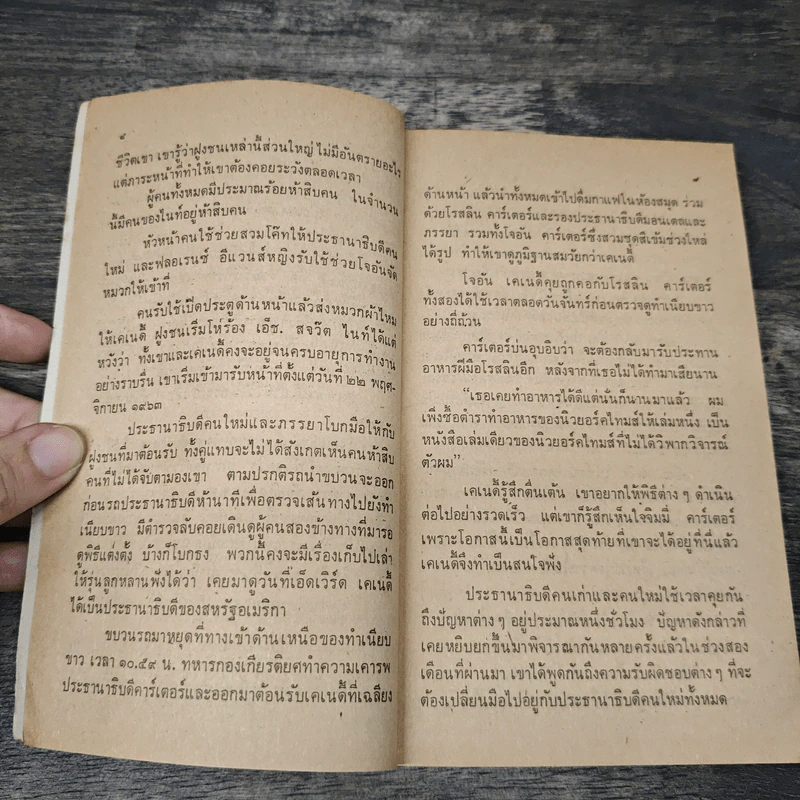 ๘
ชีวิตเขา เขารู้ว่าฝูงชนเหล่านี้ส่วนใหญ่ ไม่มีอันตรายอะไร
แต่ภาระหน้าที่ทำให้เขาต้องคอยระวังตลอดเวลา
ผู้คนทั้งหมดมีประมาณร้อยห้าสิบคน ในจำนวน
นี้มีคนของไนท์อยู่ห้าสิบคน
หัวหน้าคนใช้ช่วยสวมโค๊ทให้ประธานาธิบดีคน
ใหม่ และฟลอเรนซ์ อีแวนส์หญิงรับใช้ช่วยโจอันจัด
หมวกให้เข้าที่
คนรับใช้เปิดประตูด้านหน้าแล้วส่งหมวกผ้าไหม
ให้เคเนดี้ ฝูงชนเริ่มโห่ร้อง เอ็ช. สจวิต ไนท์ได้แต่
หวังว่า ทั้งเขาและเคเนดี้คงจะอยู่จนครบอายุการทำงาน
อย่างราบรื่น เขาเริ่มเข้ามารับหน้าที่ตั้งแต่วันที่ ๒๒ พฤศ-
จิกายน ๑๙๖๓
ประธานาธิบดีคนใหม่และภรรยาโบกมือให้กับ
ฝูงชนที่มาต้อนรับ ทั้งคู่แทบจะไม่ได้สังเกตเห็นคนห้าสิบ
คนที่ไม่ได้จับตามองเขา ตามปรกติรถนำขบวนจะออก
ก่อนรถประธานาธิบดีห้านาทีเพื่อตรวจเส้นทางไปยังทำ
เนียบขาว มีตำรวจลับคอยเดินดูผู้คนสองข้างทางที่มารอ
ดูพิธีแต่งตั้ง บ้างก็โบกธง พวกนี้คงจะมีเรื่องเก็บไปเล่า
ให้รุ่นลูกหลานฟังได้ว่า เคยมาดูวันที่เอ็ดเวิร์ด เคเนดี้
ได้เป็นประธานาธิบดีของสหรัฐอเมริกา
ขบวนรถมาหยุดที่ทางเข้าด้านเหนือของทำเนียบ
ขาว เวลา ๑๐.๕๙ น. ทหารกองเกียรติยศทำความเคารพ
ประธานาธิบดีคาร์เตอร์และออกมาต้อนรับเคเนดี้ที่เฉลียง
ด้านหน้า แล้วนำทั้งหมดเข้าไปดื่มกาแฟในห้องสมุด ร่วม
ด้วยโรสลิน คาร์เตอร์และรองประธานาธิบดีมอนเดลและ
ภรรยา รวมทั้งโจอัน คาร์เตอร์ซึ่งสวมชุดสีเข้มช่วงไหล่
ได้รูป ทำให้เขาดูภูมิฐานสมวัยกว่าเคเนดี้
โจอัน เคเนดี้คุยถูกคอกับโรสลิน คาร์เตอร์
ทั้งสองได้ใช้เวลาตลอดวันจันทร์ก่อนตรวจดูทำเนียบขาว
อย่างถี่ถ้วน
คาร์เตอร์บ่นอุบอิบว่า จะต้องกลับมารับประทาน
อาหารฝีมือโรสลินอีก หลังจากที่เธอไม่ได้ทำมาเสียนาน
“เธอเคยทำอาหารได้ดีแต่นั่นก็นานมาแล้ว ผม
เพิ่งซื้อตำราทำอาหารของนิวยอร์คไทมส์ให้เล่มหนึ่ง เป็น
หนังสือเล่มเดียวของนิวยอร์คไทมส์ที่ไม่ได้วิพากวิจารณ์
ตัวผม”
เคเนดี้รู้สึกตื่นเต้น เขาอยากให้พิธีต่าง ๆ ดำเนิน
ต่อไปอย่างรวดเร็ว แต่เขาก็รู้สึกเห็นใจจิมมี่ คาร์เตอร์
เพราะโอกาสนี้เป็นโอกาสสุดท้ายที่เขาจะได้อยู่ที่นี่แล้ว
เคเนดี้จึงทำเป็นสนใจฟัง
ประธานาธิบดีคนเก่าและคนใหม่ใช้เวลาคุยกัน
ถึงปัญหาต่าง ๆ อยู่ประมาณหนึ่งชั่วโมง ปัญหาดังกล่าวที่
เคยหยิบยกขึ้นมาพิจารณากันหลายครั้งแล้วในช่วงสอง
เดือนที่ผ่านมา เขาได้พูดกันถึงความรับผิดชอบต่าง ๆ ที่จะ
ต้องเปลี่ยนมือไปอยู่กับประธานาธิบดีคนใหม่ทั้งหมด